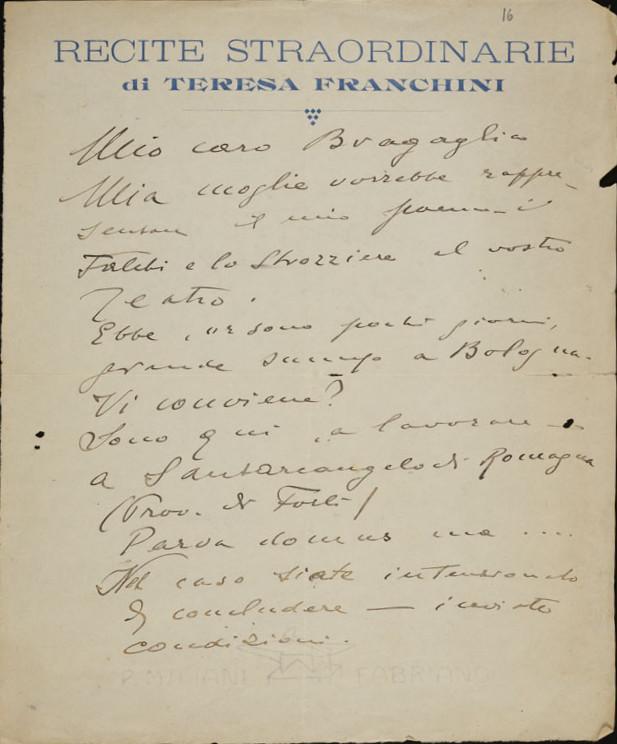 16
RECITE STRAORDINARIE
di TERESA FRANCHINI
Mio caro Bragaglia
Mia moglie vorrebbe rappre-
sentare il mio poema - i
Falchi e lo Strozziere al vostro
Teatro.
Ebbe, or sono pochi giorni,
grande successo a Bologna.
Vi conviene?
Sono qui, a lavorare -
a Santarcangelo di Romagna
(Prov. di Forlì)
Parva domus ma ....
Nel caso siate intenzionato
di concludere — inviate
condizioni.
P. MILIANI FABRIANO